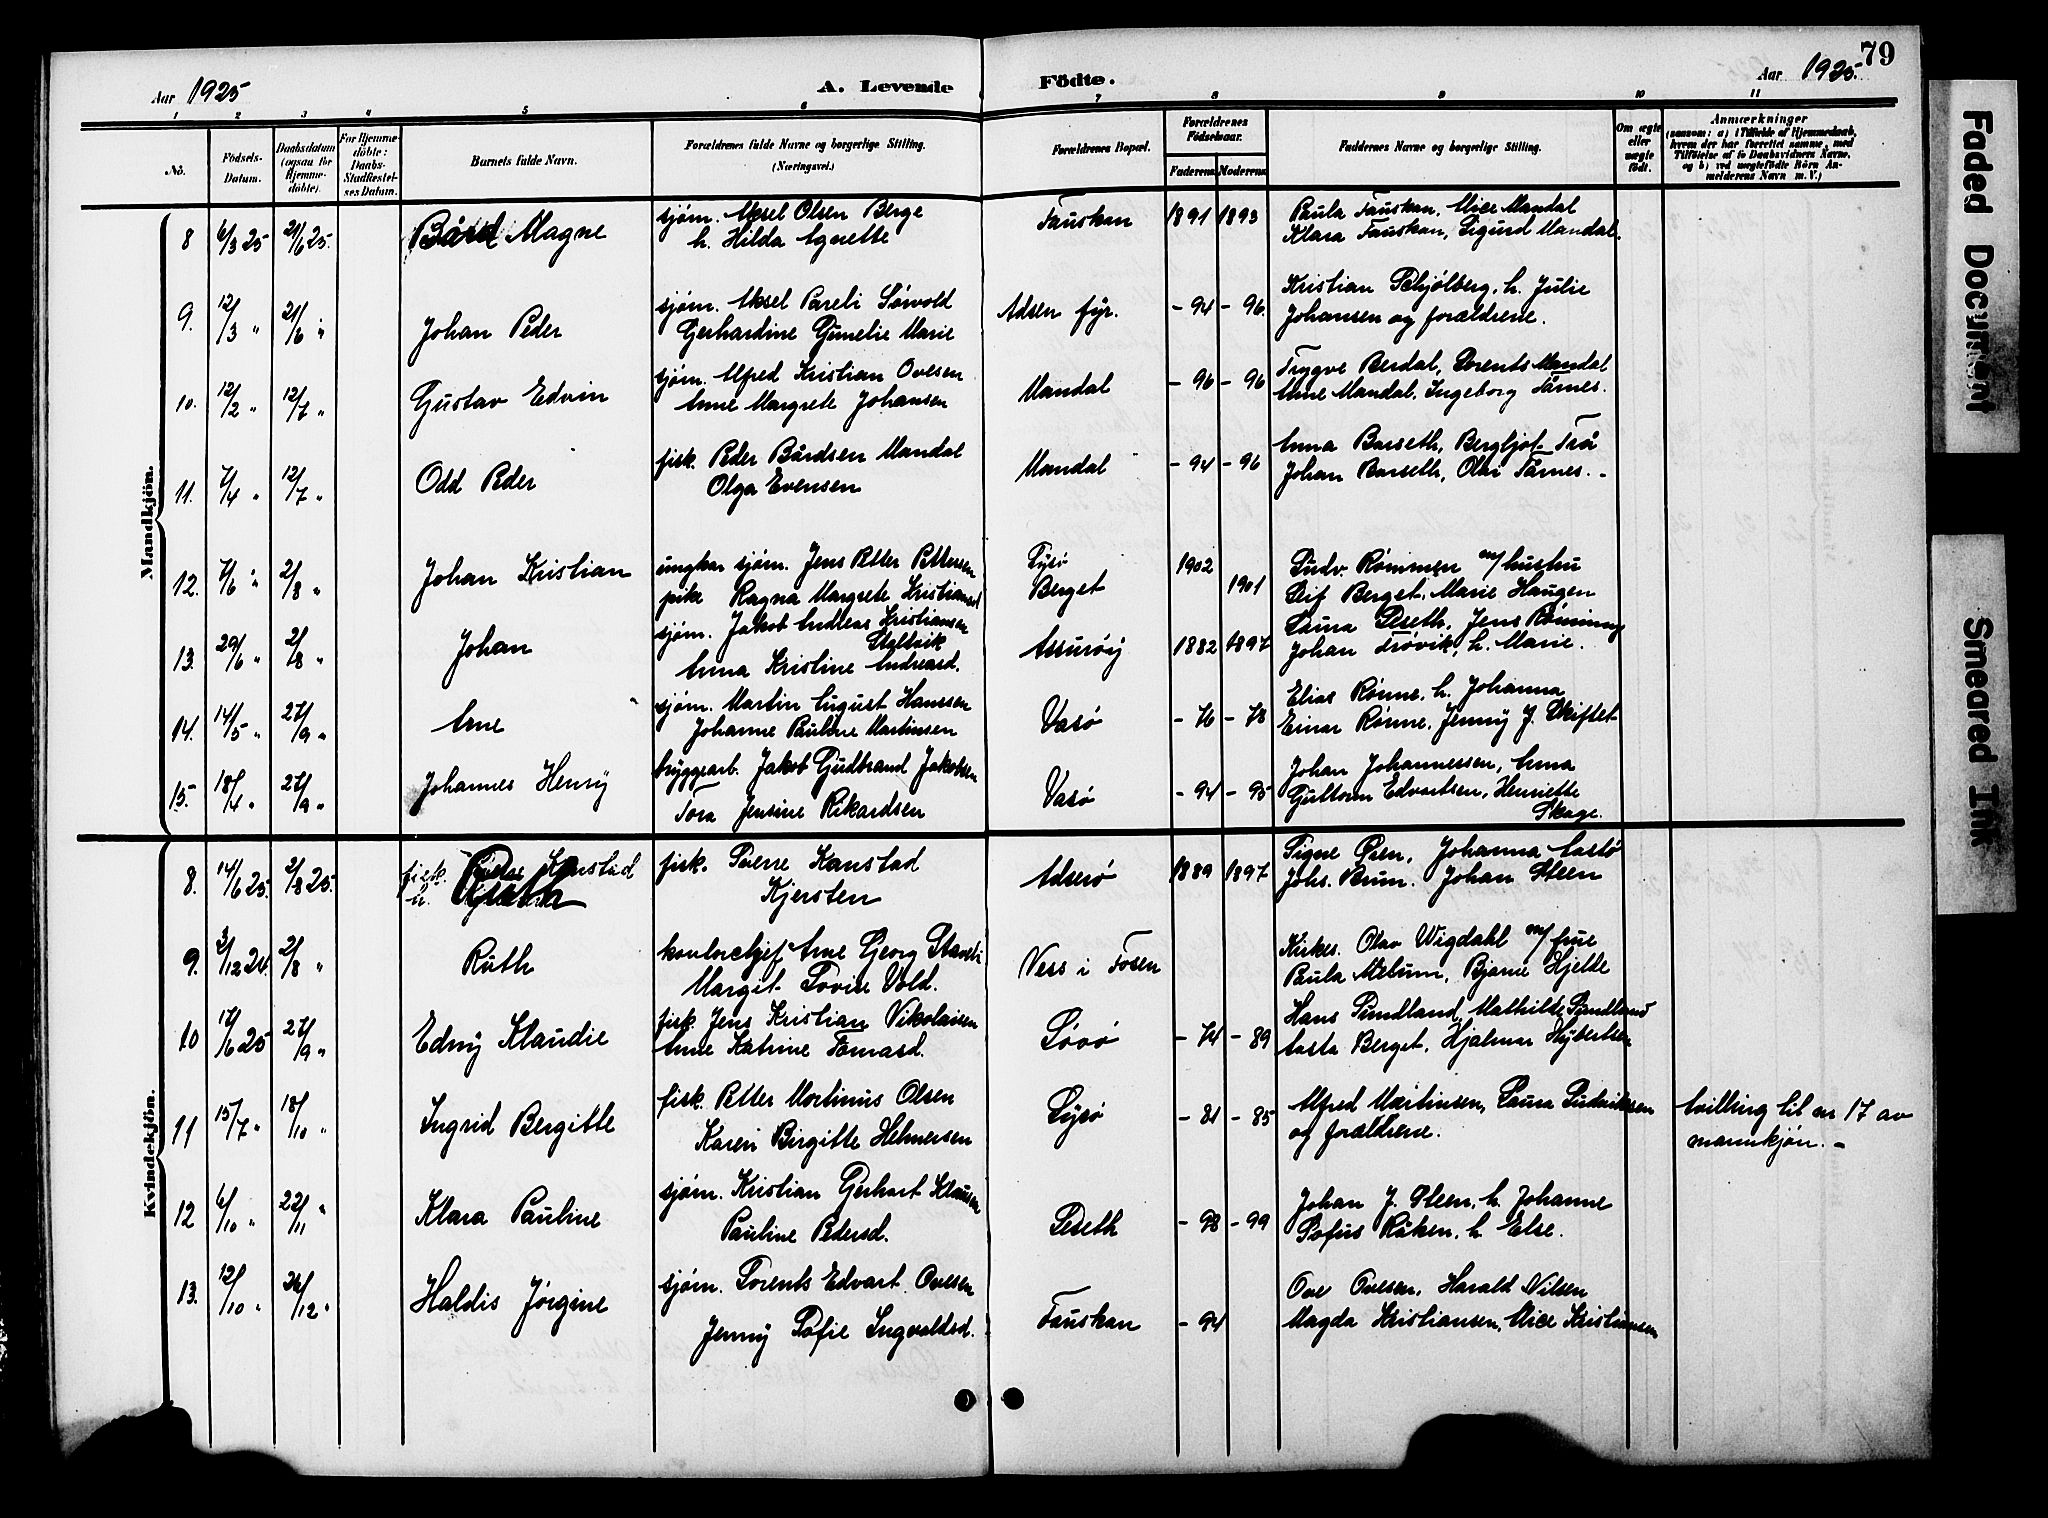 79
Aar 1925
A. Levende
Födte.
Aar 1925.
1 2 3 4 5 6 7 8 9 10 11
No.
Födsels-Datum.
Daabsdatum (ogsaa for Hjemme-döbte).
For Hjemme-döbte: Daabs-Stadfæstel-ses Datum.
Barnets fulde Navn.
Forældrenes fulde Navne og borgerlige Stilling. (Næringsvei.)
Forældrenes Bopæl.
Forældrenes Födselsaar.
Faderens Moderens
Faddernes Navne og borgerlige Stilling.
Om ægte eller uægte födt.
Anmærkninger
(saasom: a) i Tilfælde af Hjemmedaab, hvem der har forrettet samme, med Tilföielse af to Daabsvidners Navne, og b) ved uægtefödte Börn Anmelderens Navn m. V.)
Mandkjön.
8 6/3 25 21/6 25. Bård Magne
sjøm. Aksel Olsen Berge
h. Hilda Agnette
Fauskan 1891 1893
Paula Fauskan, Alice Mandal
Klara Fauskan, Sigurd Mandal.
9. 12/3 " 21/6 " Johan Peder
sjøm. Aksel Pareli Sørvold
Gerhardine Gunelie Marie
Adsen fyr. - 94 - 96.
Kristian Schjølberg, h. Julie
Johansen og forældrene.
10. 12/2 " 12/7 " Gustav Edvin
sjøm. Alfred Kristian Ovesen
Anne Margrete Johansen
Mandal - 96 - 96
Trygve Berdal, Lorents Mandal
Anne Mandal, Ingeborg Tårnes.
11. 7/4 " 12/7 " Odd Peder
fisk. Peder Bårdsen Mandal
Olga Evensen
Mandal - 94 - 96
Anna Barseth, Bergljot Trå
Johan Barseth, Olai Tårnes. -
12. 7/6 " 2/8 " Johan Kristian
ungkar sjøm. Jens Petter Pettersen
pike Ragna Margrete Kristiansd
Lysø
Berget 1902 1901
Ludv. Rømmen m/hustru
Leif Berget, Marie Haugen
13. 29/6 " 2/8 " Johan
sjøm. Jakob Andreas Kristiansen
Anna Kristine Andreasd.
Assurøy 1882 1897
Laura Leseth, Jens Rønning
Johan Trøvik, h. Marie.
14. 14/5 " 27/9 " Arne
sjøm. Martin August Hanssen
Johanne Pauline Martinsen
Vasø - 76 - 78
Elias Rønne, h. Johanna
Einar Rønne, Jenny J. Skiftet
15. 18/4 " 27/9 " Johannes Henry
bryggearb. Jakob Gudbrand Jakobsen
Tora Jensine Rikardsen
Vasø - 94 - 95
Johan Johannessen, Anna
Guttorm Edvartsen, Henriette
Skage.
Kvindekjön.
8. 14/6 25. 2/8 25. fisk. Kanstad
h.
fisk. Sverre Kanstad
Kjersten
Adserø 1889 1897
Signe Øien, Johanna Aastø
Johs. Brun. Johan Steen
9. 3/12 24. 2/8 " Ruth
kontorchef Arne Georg
Margit Lovise Vold.
Ness i Fosen
Kirkes. Olav Wigdahl m/frue
Paula Melum, Bjarne Hjelde
10 17/6 25 27/9 " Edny Klaudie
fisk. Jens Kristian Nikolaisen
Anne Katrine Tomasd.
Søvø - 74 - 89
Hans Sundland, Mathilde Sundland
Aasta Berget, Hjalmar Hybertsen
11 15/7 " 18/10 " Ingrid Bergitte
fisk. Petter Mortinus Olsen
Karen Birgitte Helmersen
Lysø - 81 - 85
Alfred Martinsen, Laura Ludviksen
og forældrene.
tvilling til nr 17 av
mannkjøn. -
12 6/10 " 22/11 " Klara Pauline
sjøm. Kristian Gerhart Klausen
Pauline Pedersd.
Leseth - 98 - 99
Johan J. Steen, h. Johanne
Sofus Røken, h. Else.
13. 12/10 " 26/12 " Haldis Jørgine
sjøm. Lorents Edvart Ovesen
Jenny Sofie Ingvaldsd.
Fauskan - 94
Ove Ovesen, Harald Nilsen
Magda Kristiansen, Alice Kristiansen
Faded Document
Smeared Ink